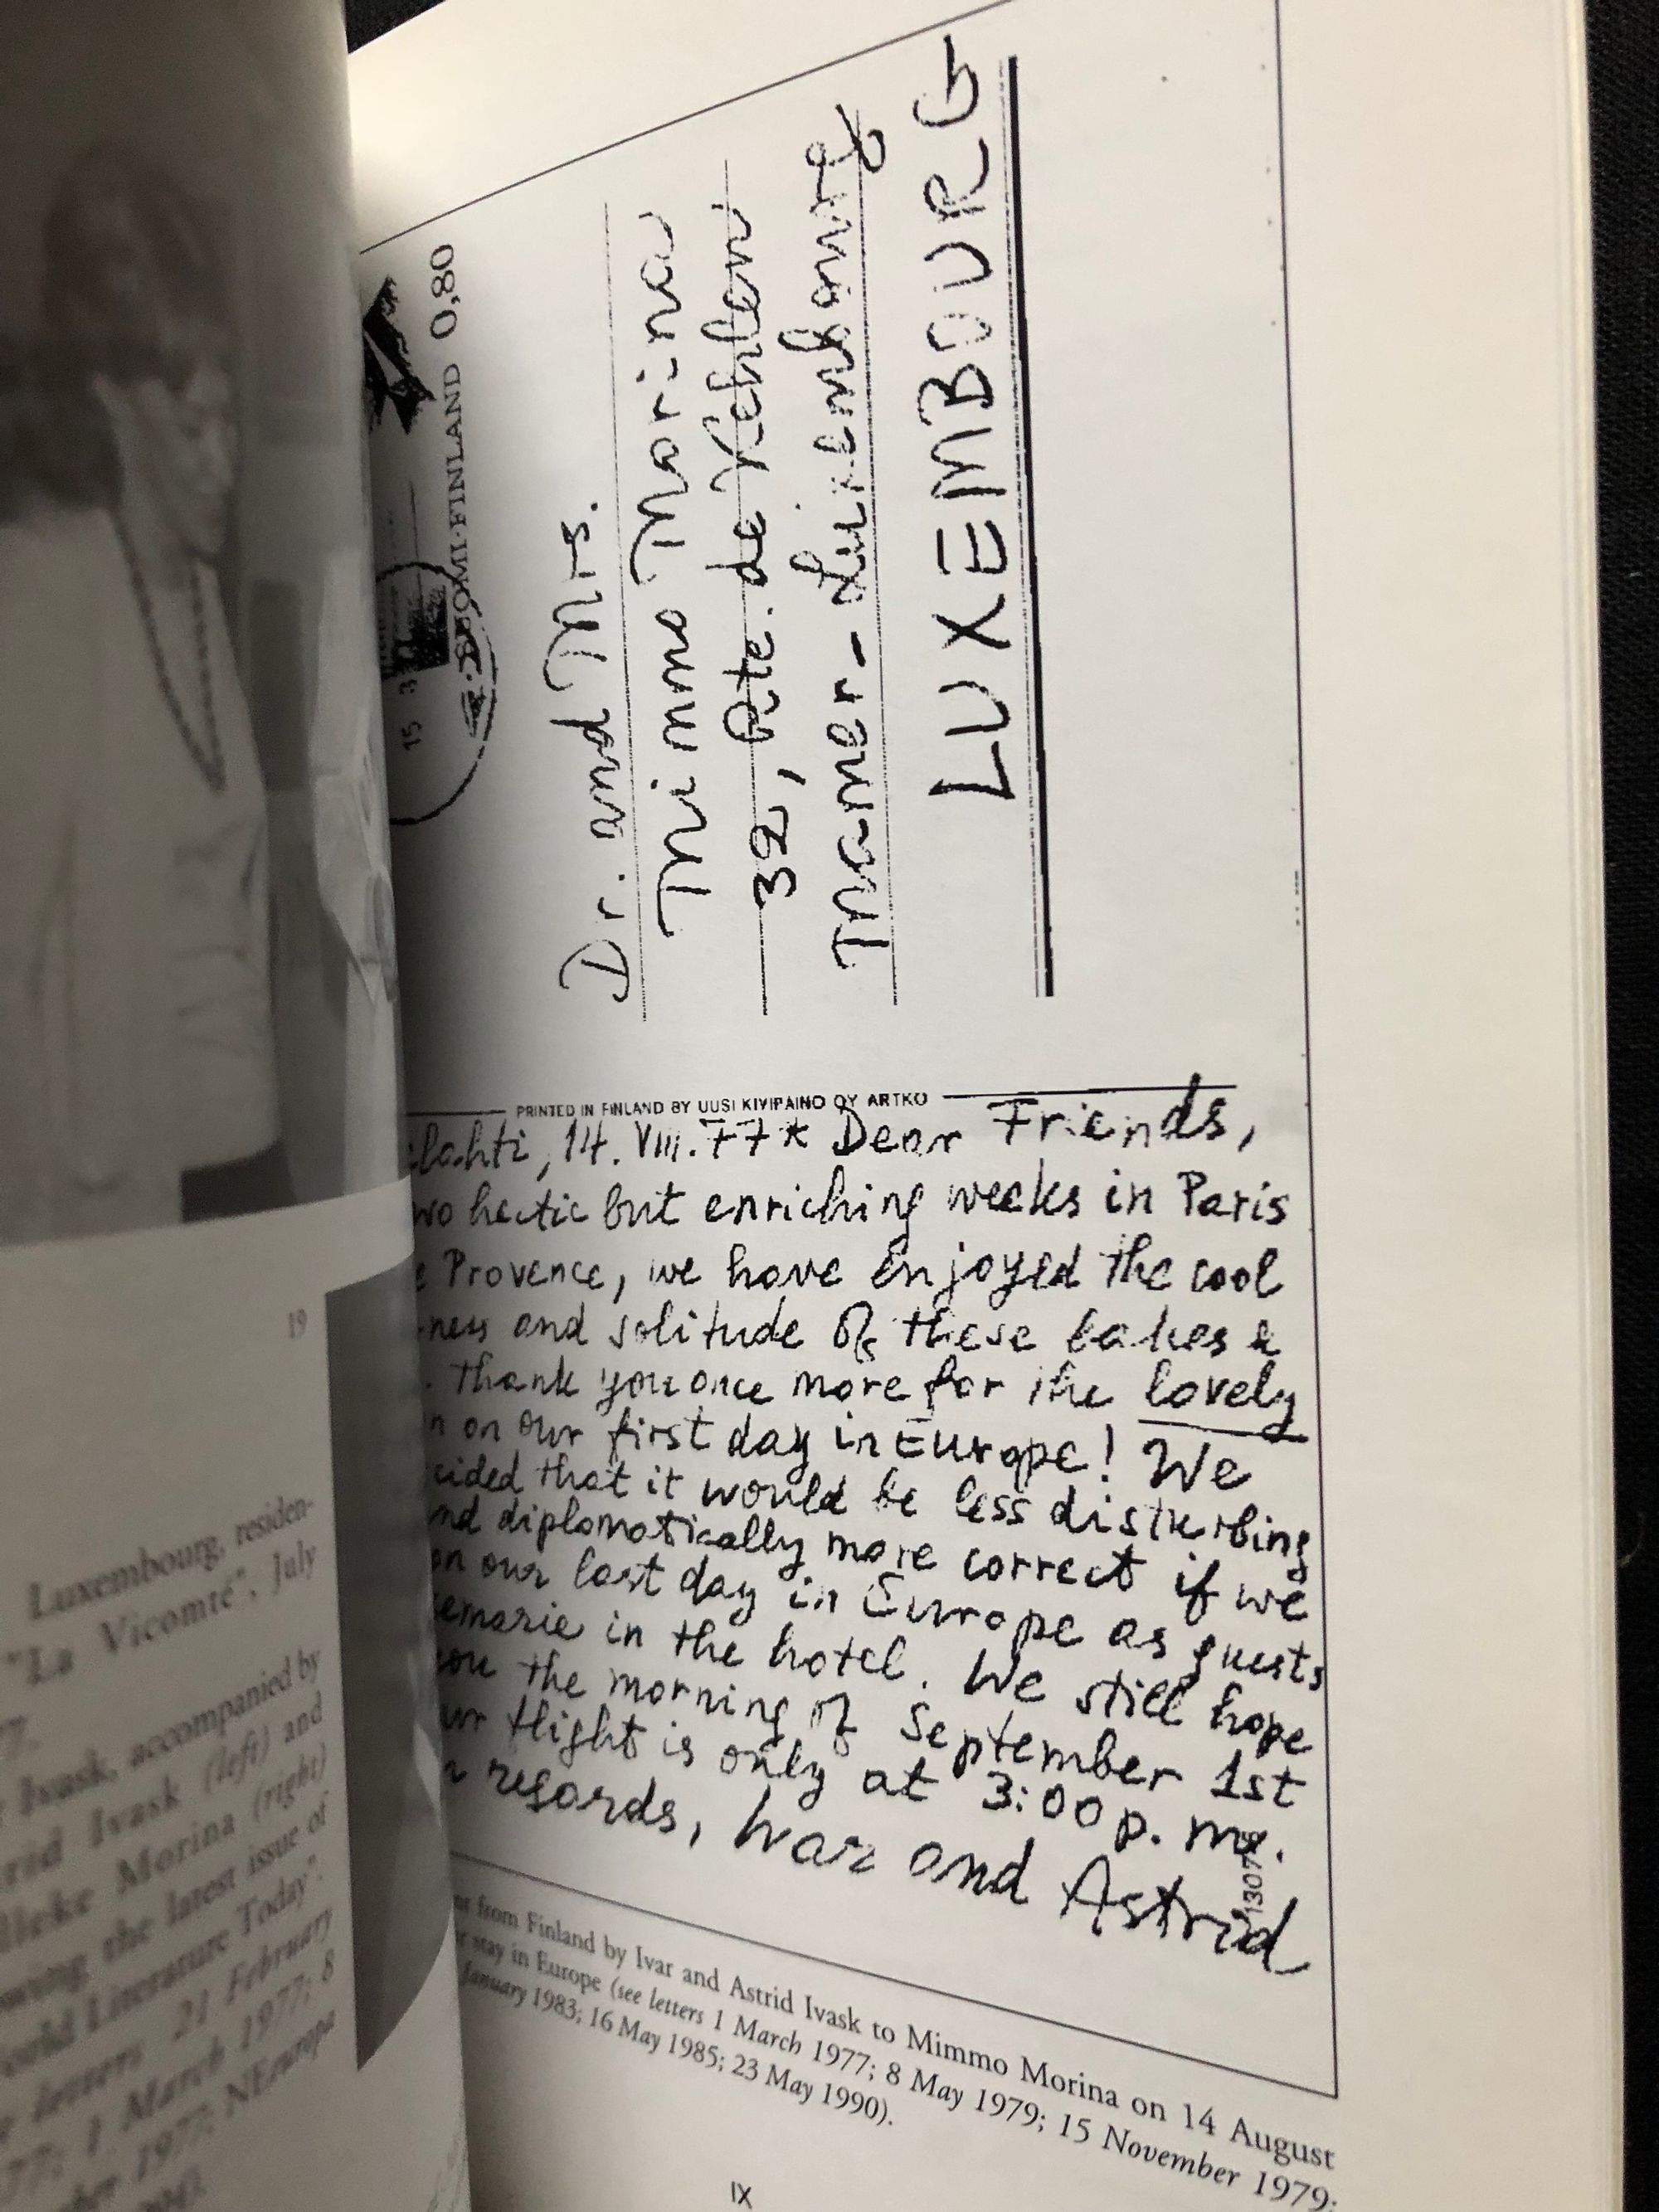 19
Luxembourg, residen-
"La Vicomté", July
7.
Ivask, accompanied by
Ivask (left) and
Morina (right)
the latest issue of
World Literature Today".
letters 21 February
1 March 1977; 8
1977; NEuropa
SUOMI-FINLAND 0,80
15
Dr. and Mrs.
Mimmo Morina
32, Rte. de
Luxembourg
LUXEMBOURG
PRINTED IN FINLAND BY UUSI KIVIPAINO OY ARTKO
lahti, 14. VIII. 77 * Dear Friends,
wo hectic but enriching weeks in Paris
e Provence, we have enjoyed the cool
ness and solitude of these lakes &
. Thank you once more for the lovely
n on our first day in Europe! We
cided that it would be less disturbing
nd diplomatically more correct if we
on our last day in Europe as guests
semarie in the hotel. We still hope
you the morning of September 1st
ur flight is only at 3:00 p. m.
regards, Ivar and Astrid
from Finland by Ivar and Astrid Ivask to Mimmo Morina on 14 August
r stay in Europe (see letters 1 March 1977; 8 May 1979; 15 November 1979;
January 1983; 16 May 1985; 23 May 1990).
IX